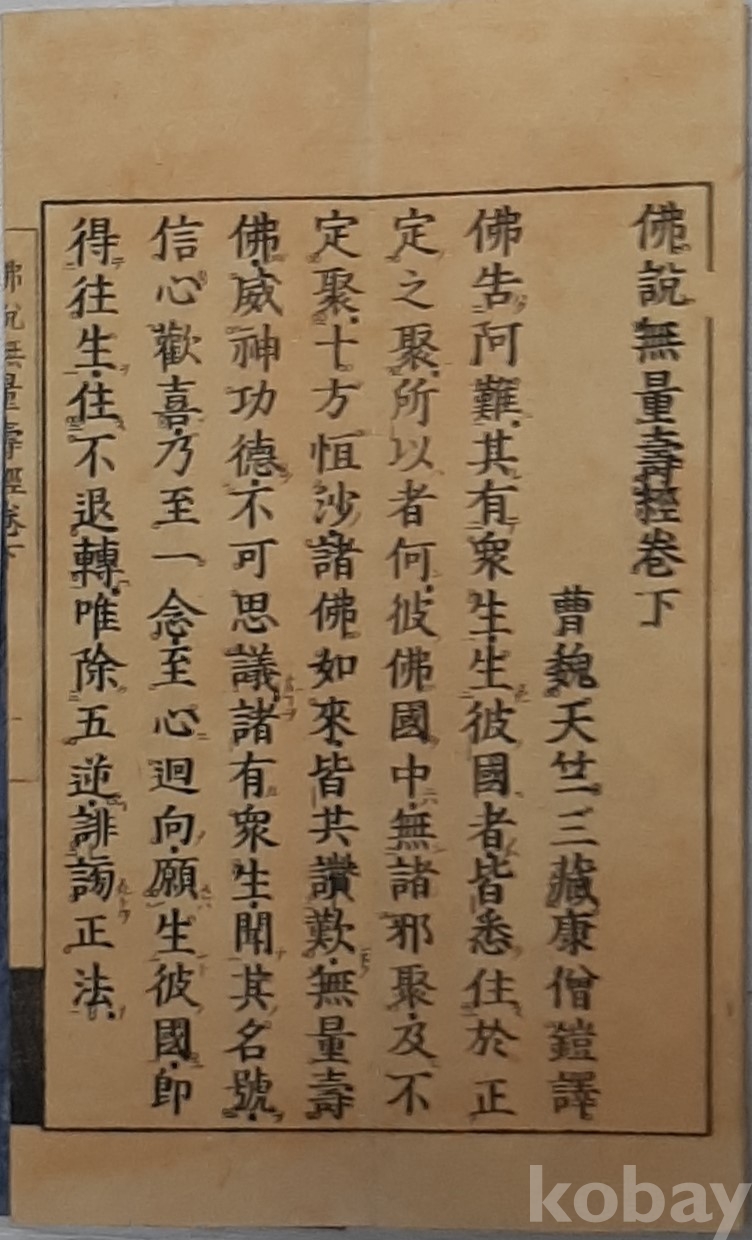 佛說無量壽經卷下
曹魏天竺三藏康僧鎧譯
佛告阿難其有衆生生彼國者皆悉住於正
定之聚所以者何彼佛國中無諸邪聚及不
定聚十方恒沙諸佛如來皆共讚歎無量壽
佛威神功德不可思議諸有衆生聞其名號
信心歡喜乃至一念至心迴向願生彼國即
得往生住不退轉唯除五逆誹謗正法
佛說無量壽經卷下
kobay